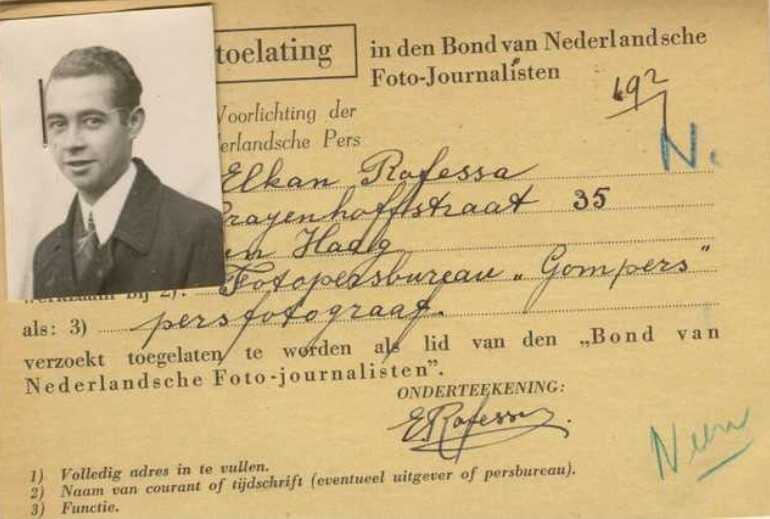 toelating
in den Bond van Nederlandsche
Foto-Journalisten
Voorlichting der
erlandsche Pers
192
N.
Elkan Rafessa
rayenhoffstraat 35
en Haag
bij 2): Fotopersbureau „Gompers"
als: 3) persfotograaf.
verzoekt toegelaten te worden als lid van den „Bond van
Nederlandsche Foto-journalisten".
ONDERTEEKENING:
ERafessa.
Neen
1) Volledig adres in te vullen.
2) Naam van courant of tijdschrift (eventueel uitgever of persbureau).
3) Functie.